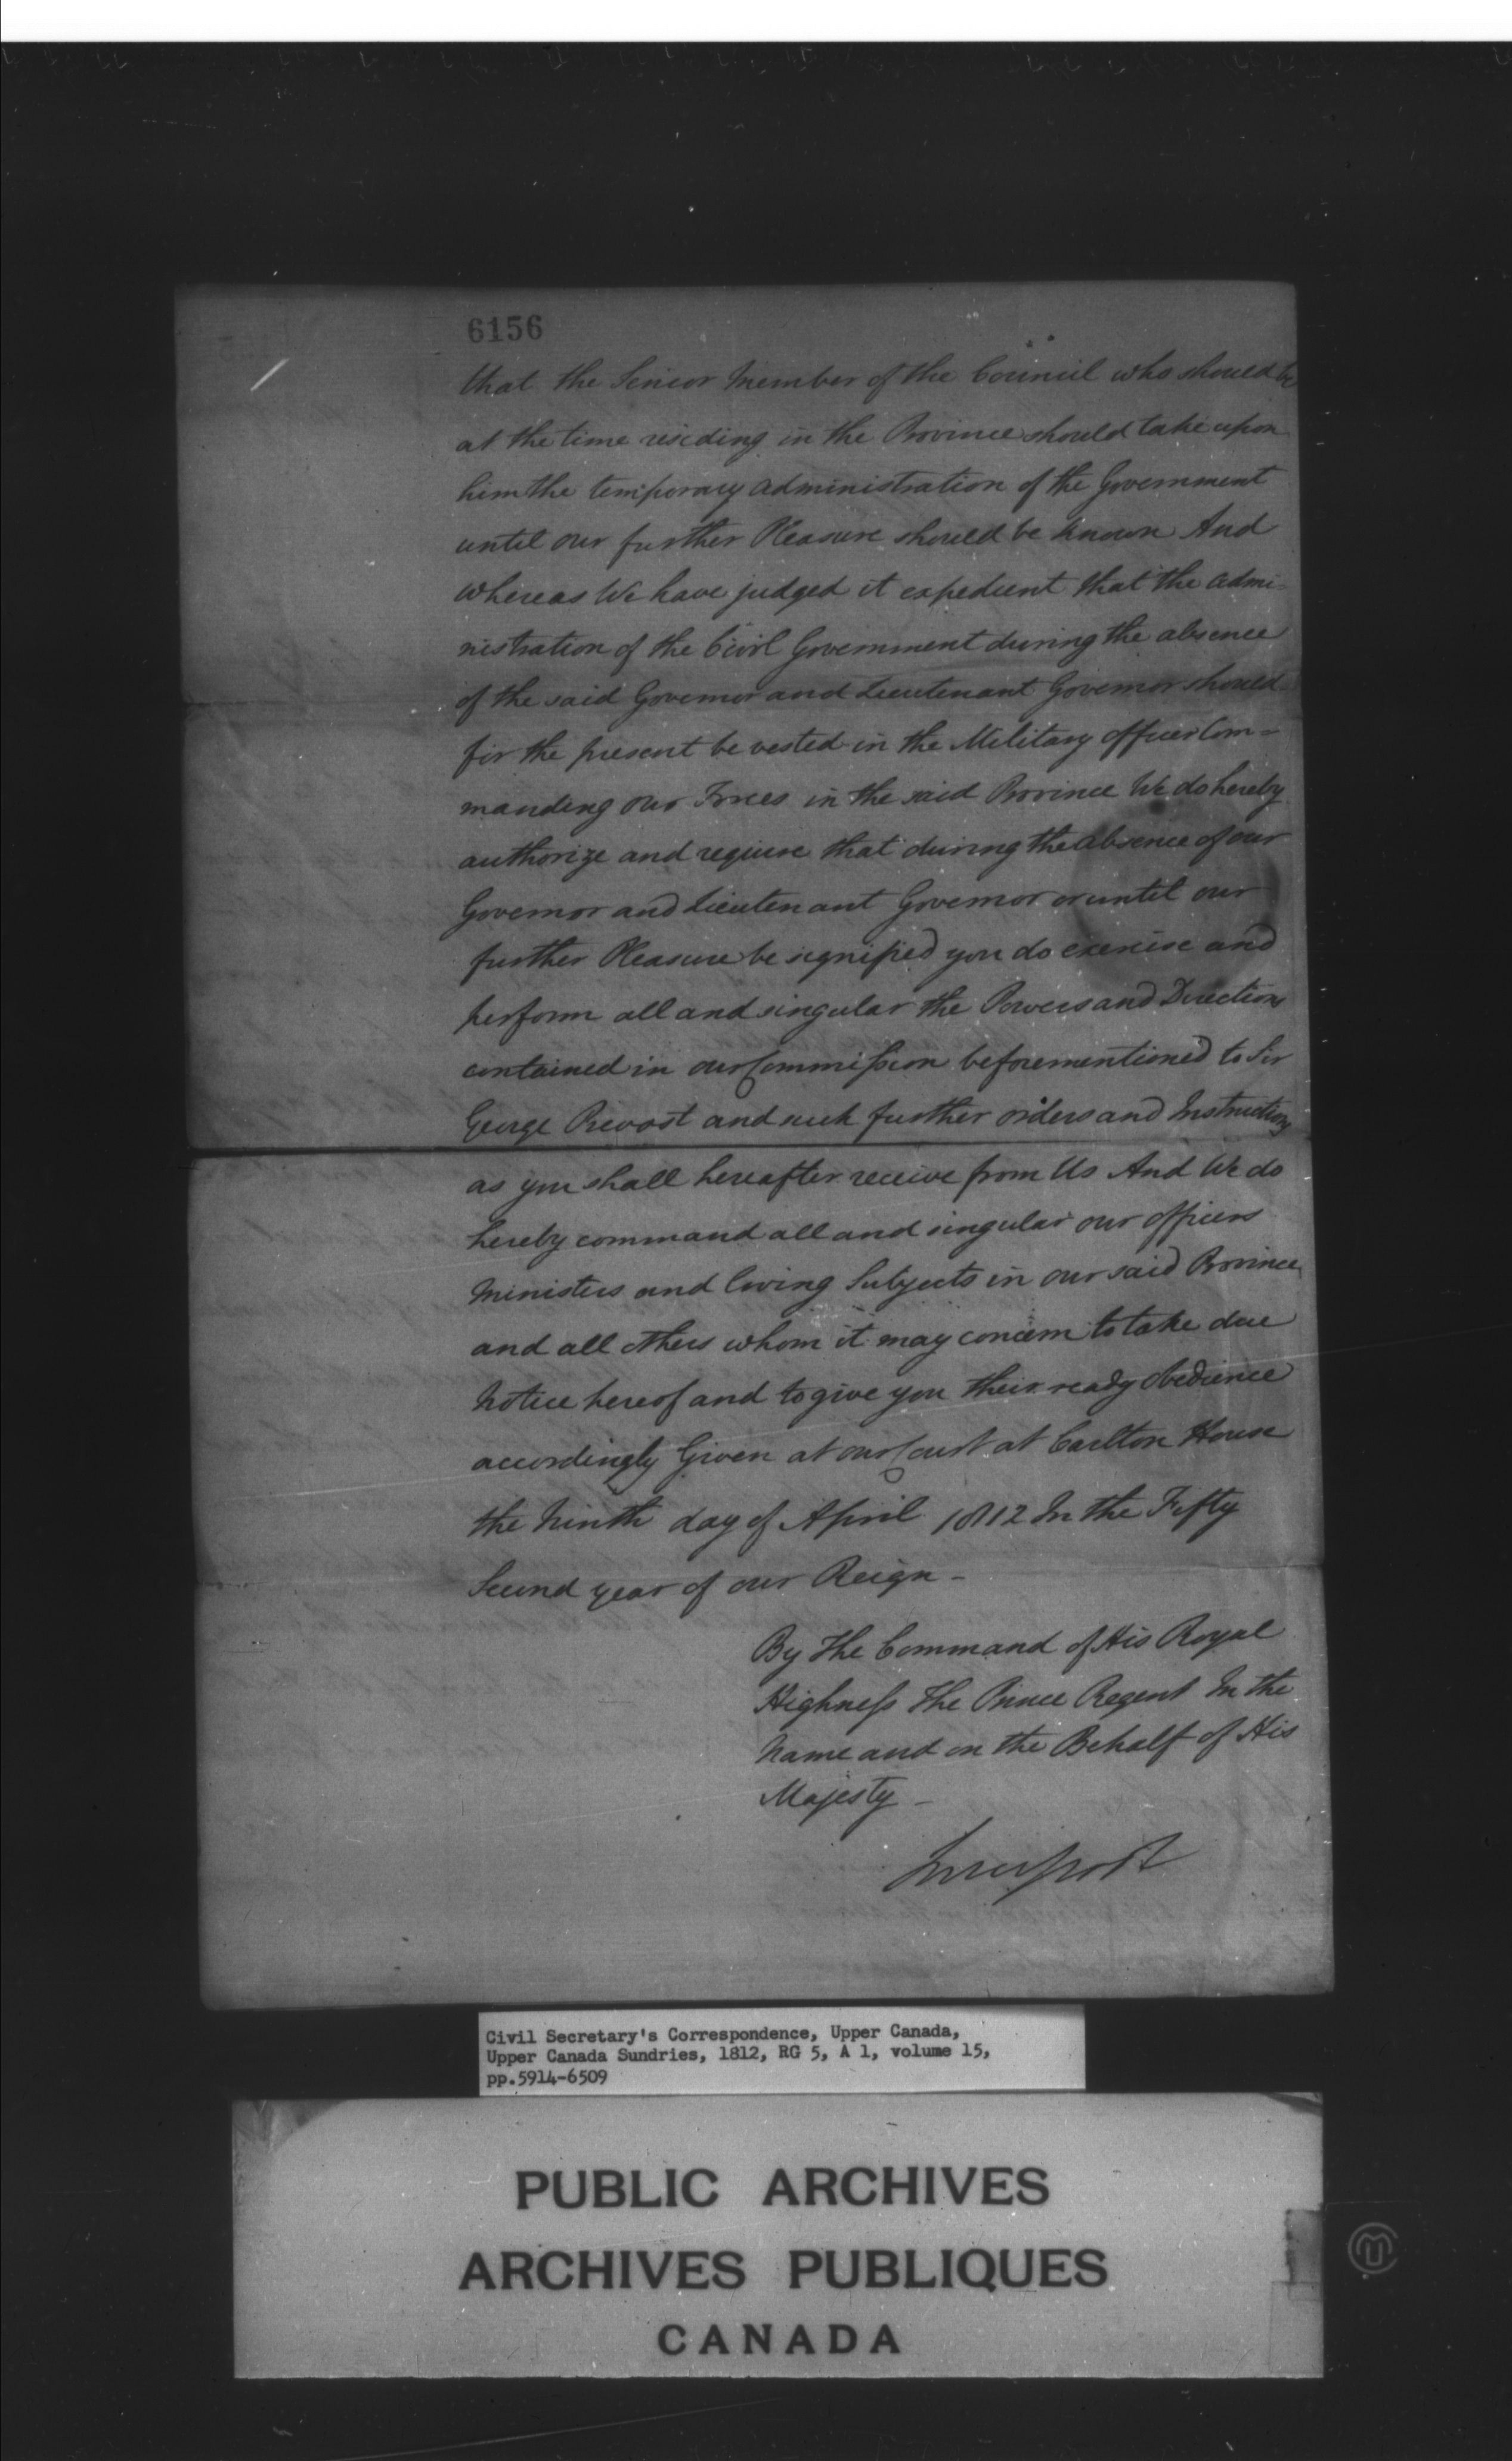 6156
that the Senior Member of the Council who should be
at the time residing in the Province should take upon
him the temporary administration of the Government
until our further Pleasure should be known And
whereas We have judged it expedient that the admi-
nistration of the Civil Government during the absence
of the said Governor and Lieutenant Governor should
for the present be vested in the Military officer Com=
manding our Forces in the said Province We do hereby
authorize and require that during the absence of our
Governor and Lieutenant Governor or until our
further Pleasure be signified you do exercise and
perform all and singular the Powers and Directions
contained in our Commission beforementioned to Sir
George Prevost and such further orders and Instructions
as you shall hereafter receive from Us And We do
hereby command all and singular our officers
Ministers and loving Subjects in our said Province
and all others whom it may concern to take due
Notice hereof and to give you their ready obedience
accordingly Given at our Court at Carlton House
the Ninth day of April 1812 In the Fifty
Second year of our Reign -
By The Command of His Royal
Highness The Prince Regent In the
Name and on the Behalf of His
Majesty -
Liverpool
Civil Secretary's Correspondence, Upper Canada,
Upper Canada Sundries, 1812, RG 5, A 1, volume 15,
pp.5914-6509
PUBLIC ARCHIVES
ARCHIVES PUBLIQUES
CANADA